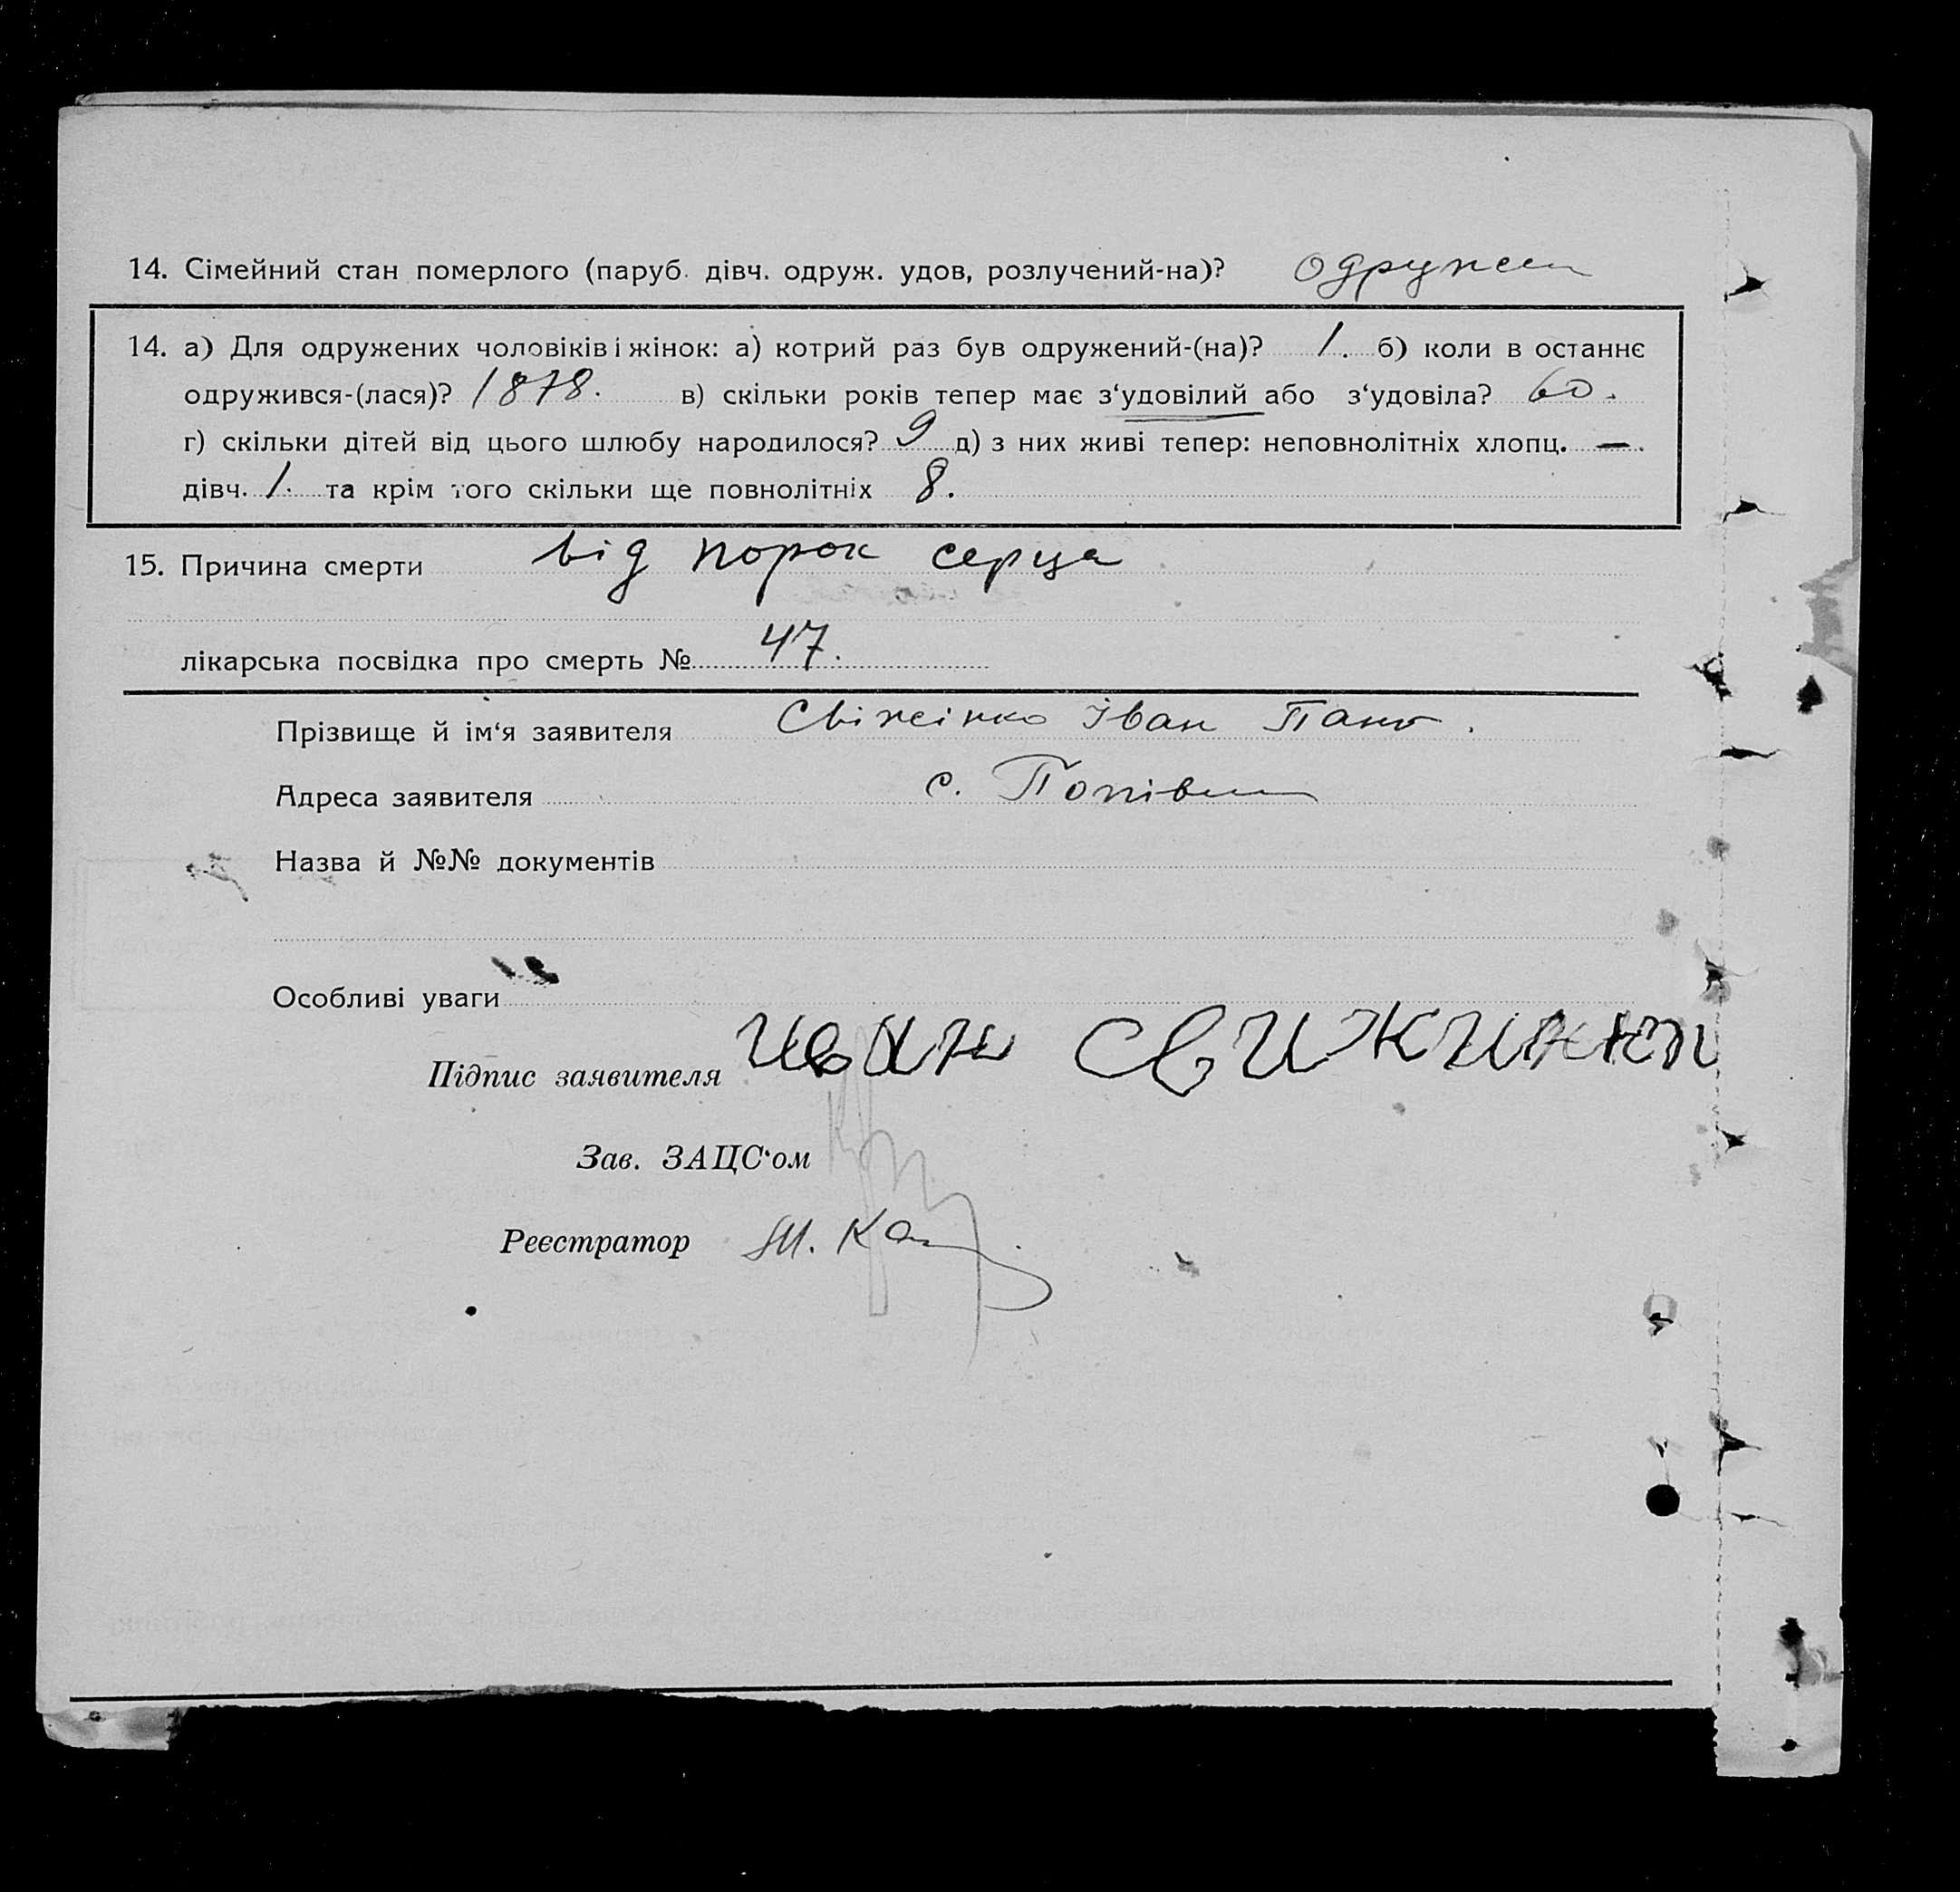 14. Сімейний стан померлого (паруб. дівч. одруж. удов, розлучений-на)? одружен
14. а) Для одружених чоловіків і жінок: а) котрий раз був одружений-(на)? 1. б) коли в останнє
одружився-(лася)? 1878. в) скільки років тепер має з‘удовілий або з‘удовіла? 60.
г) скільки дітей від цього шлюбу народилося? 9 д) з них живі тепер: неповнолітніх хлопц. —.
дівч. 1. та крім того скільки ще повнолітніх 8.
15. Причина смерти від порок серца
лікарська посвідка про смерть № 47.
Прізвище й ім‘я заявителя Свіжінко Іван
Адреса заявителя с. Попівка
Назва й №№ документів
Особливі уваги
Підпис заявителя Иван
Зав. ЗАЦС‘ом
Реєстратор